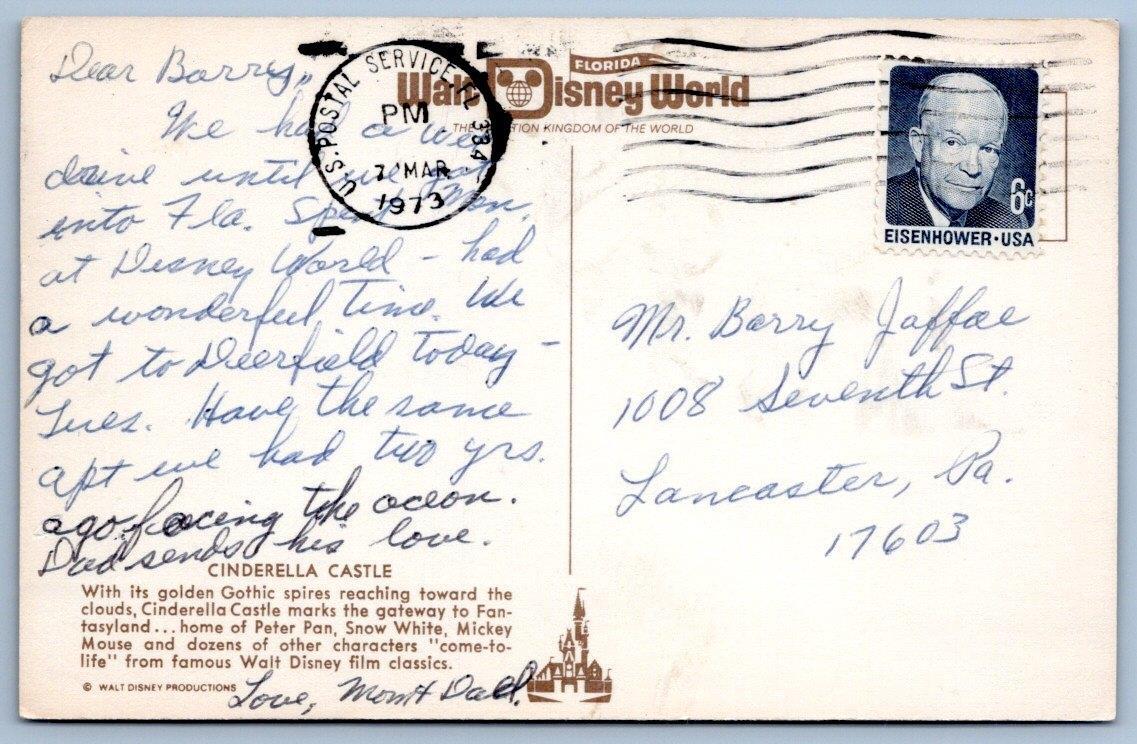 Dear Barry,
We had a wet
drive until we
into Fla. Spent Mon.
at Disney World - had
a wonderful time. We
got to Deerfield today -
Tues. Have the same
apt we had two yrs.
ago facing the ocean.
Dad sends his love.
Love, Mom & Dad.
CINDERELLA CASTLE
With its golden Gothic spires reaching toward the
clouds, Cinderella Castle marks the gateway to Fan-
tasyland...home of Peter Pan, Snow White, Mickey
Mouse and dozens of other characters "come-to-
life" from famous Walt Disney film classics.
© WALT DISNEY PRODUCTIONS
U.S. POSTAL SERVICE, FL 334
PM
7 MAR
1973
FLORIDA
Walt Disney World
THE VACATION KINGDOM OF THE WORLD
6c
EISENHOWER·USA
Mr. Barry Jaffae
1008 Seventh St.
Lancaster, Pa.
17603